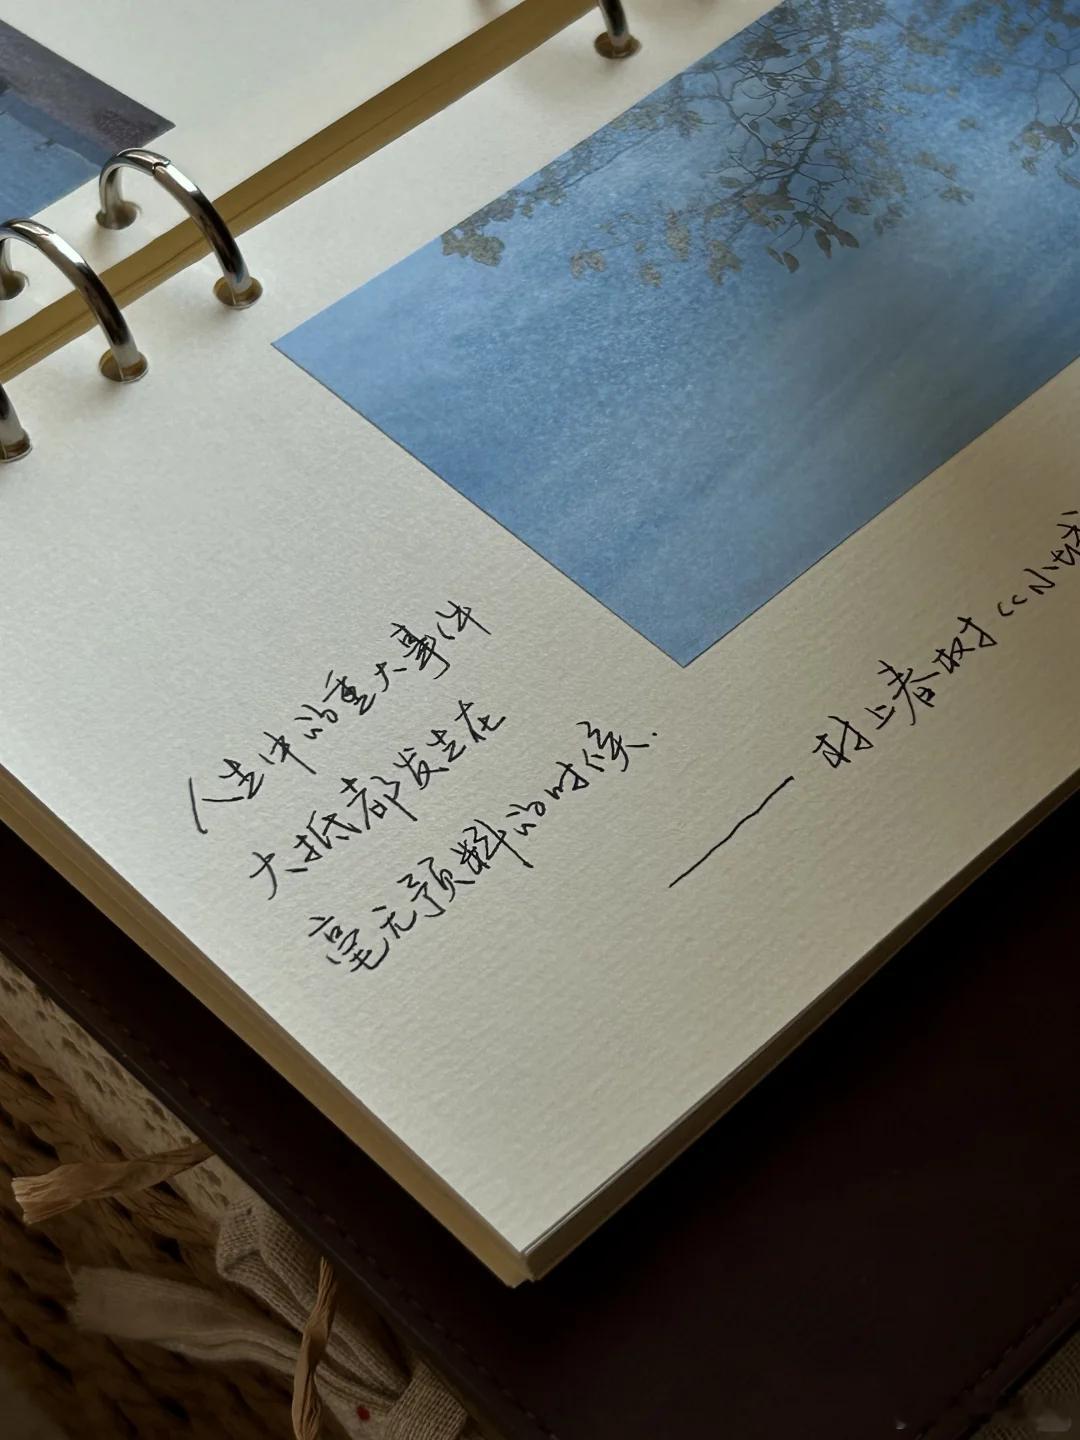 人生中的重大事件
大抵都发生在
毫无预料的时候.
—— 村上春树《小城